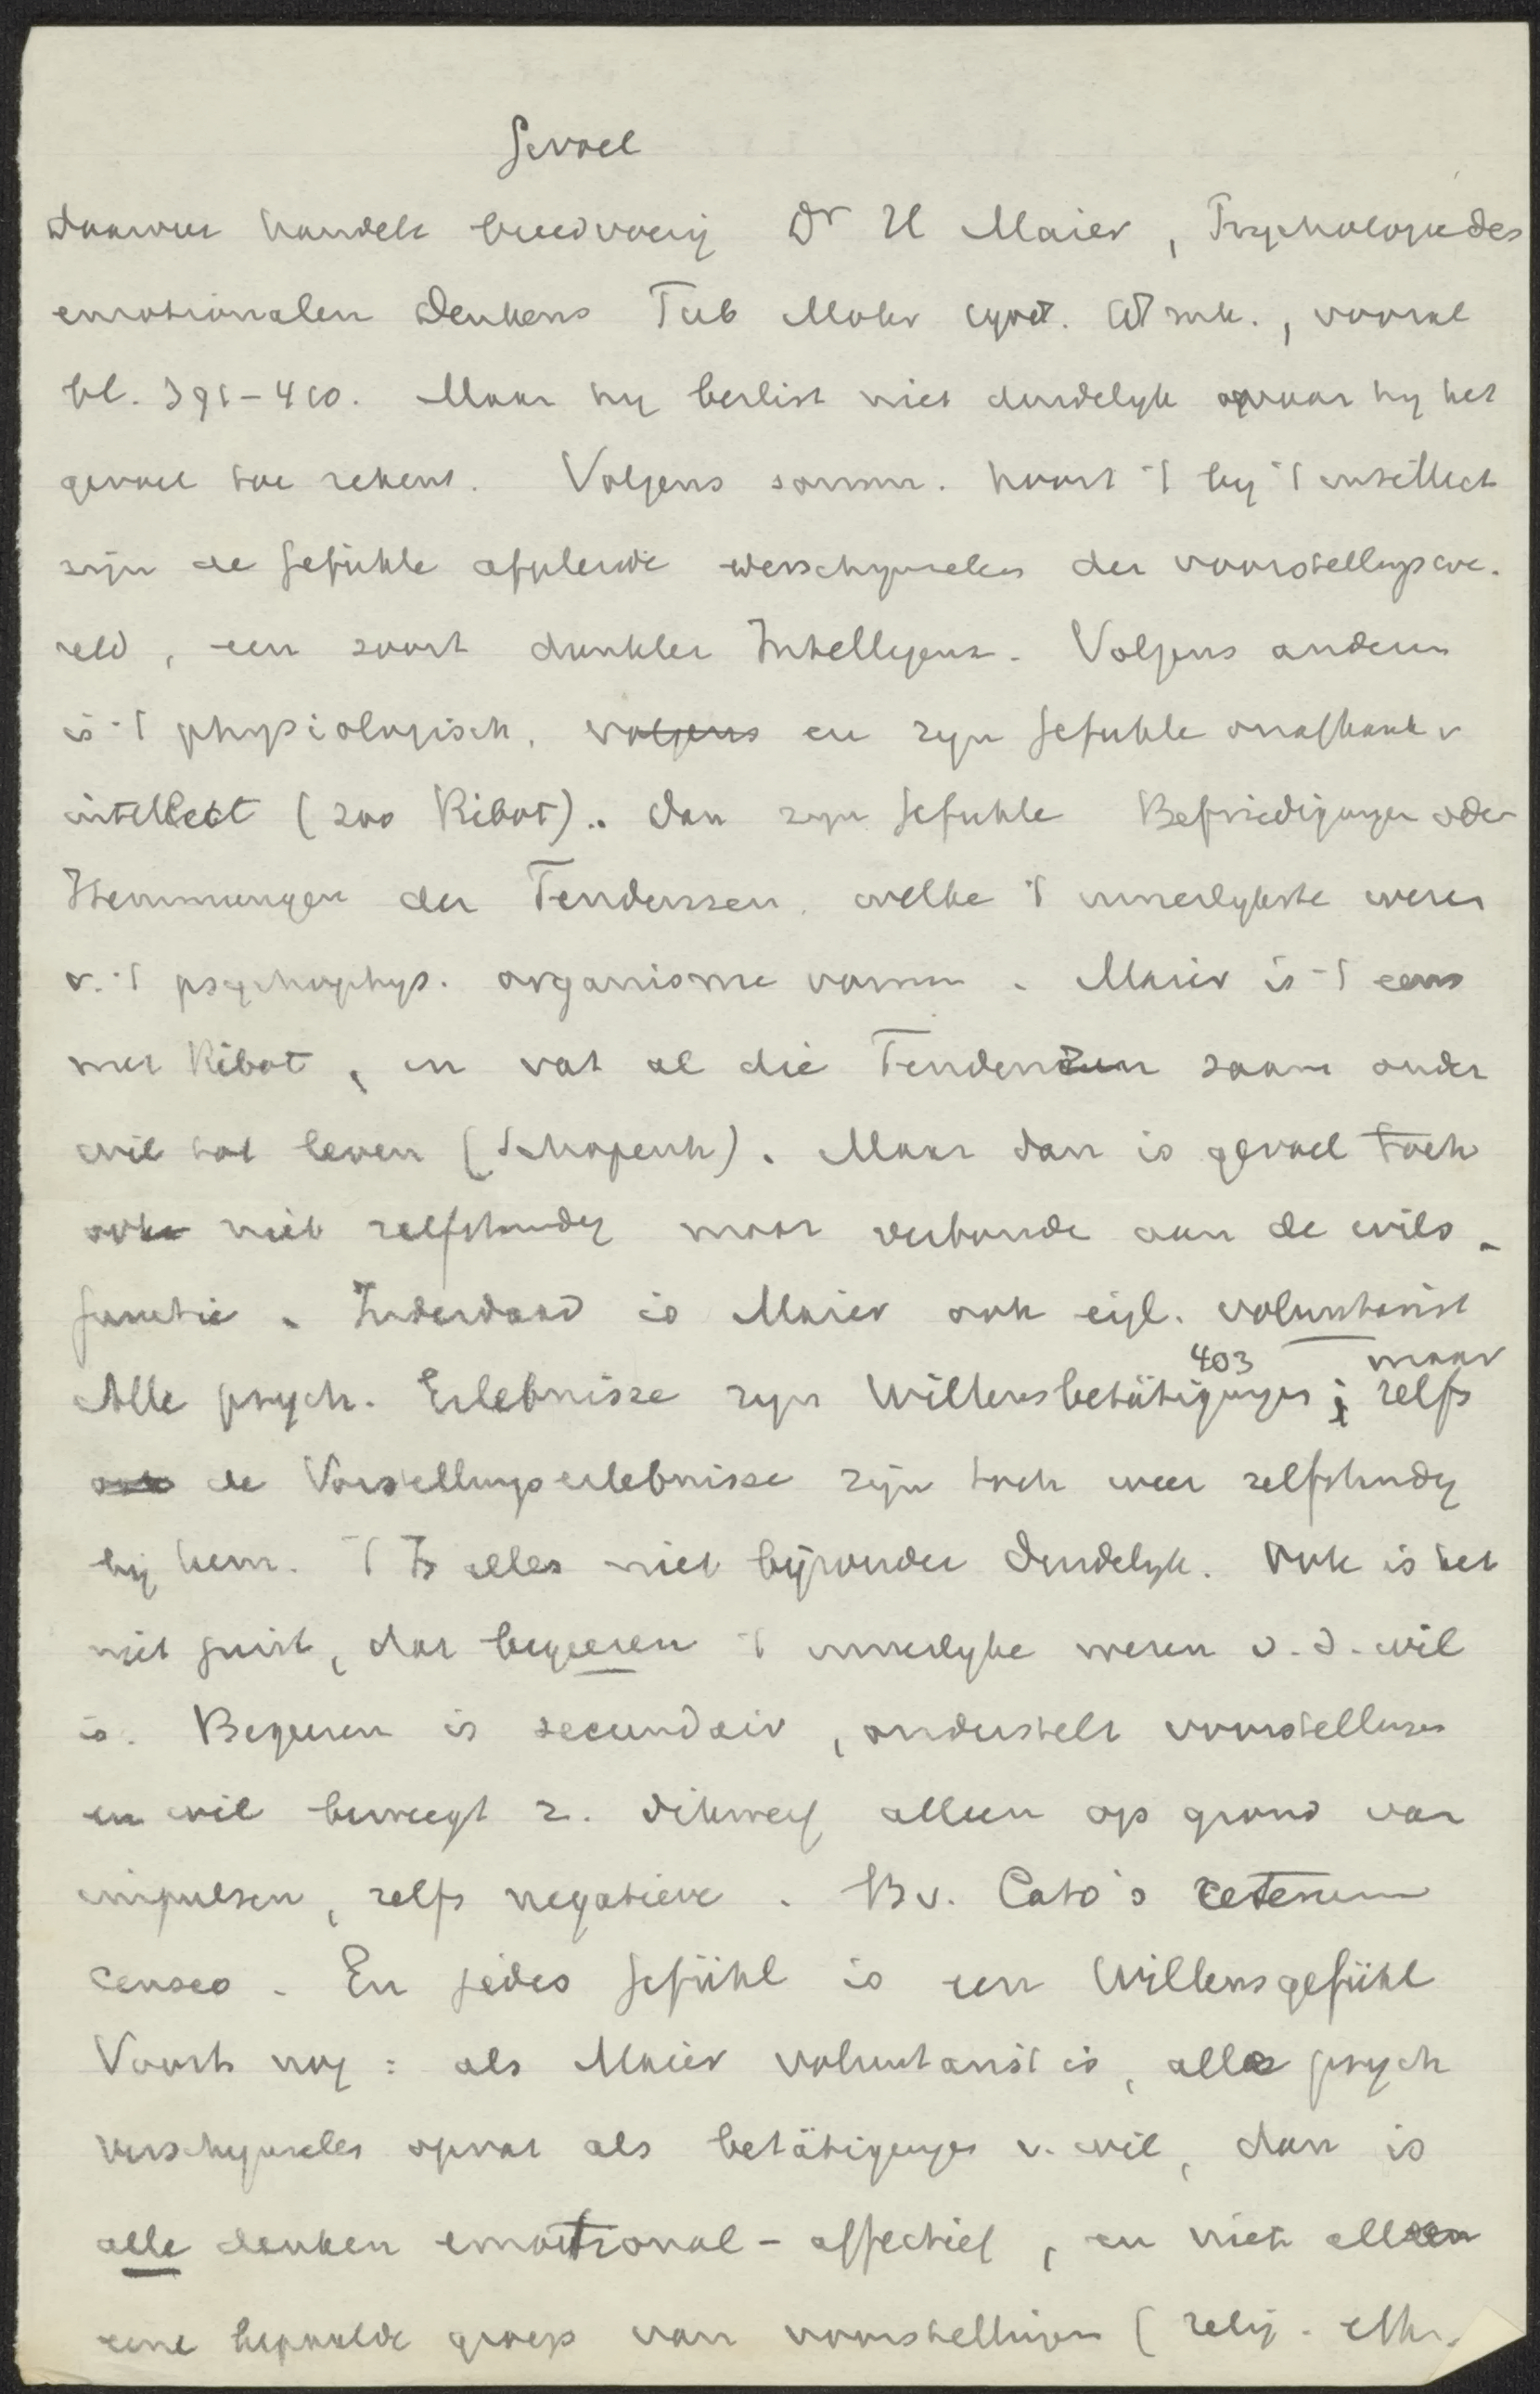 Gevoel
Daarover handelt breedvoerig Dr H Maier, Psychologie des
emotionalen Denkens Tub Mohr 1908. , vooral
bl. 391-410. Maar hy beslist niet duidelyk waar hy het
gevoel toe rekent. Volgens somm. hoort 't by 't intellect
zijn de Gefühle afgeleide verschynselen der voorstellingswe-
reld, een soort dunkler Intelligenz. Volgens anderen
is 't physiologisch, volgens en zyn Gefuhle onafhank v
intellect (zoo Ribot). Dan zyn Gefuhle Befriedigungen oder
Hemmungen der Tendenzen, welke 't innerlykste wezen
v. 't psychophys. organisme vormen. Maier is 't eens
met Ribot, en vat al die Tendenzen saam onder
wil tot leven (Schopenh). Maar dan is gevoel toch
ook niet zelfstandig maar verbonde aan de wils-
functie. Inderdaad is Maier ook eigl. voluntarist
403 maar
Alle psych. Erlebnisse zyn Willensbetätigungen; zelfs
ook de Vorstellungserlebnisse zijn toch weer zelfstandig
bij hem. 't Is alles niet bijzonder duidelyk. Ook is het
niet juist, dat begeeren 't innerlyke wezen v. d. wil
is. Begeeren is secundair, onderstelt voorstellingen
en wil beweegt z. dikwerf alleen op grond van
impulsen, zelfs negatieve. Bv. Cato's ceterum
censeo. En jedes Gefühl is een Willensgefühl
Voorts nog: als Maier voluntarist is, alle psych
verschynselen opvat als betätigungen v. wil, dan is
alle denken emotional-affectief, en niet alleen
eene bepaalde groep van voorstellingen (relig. eth.